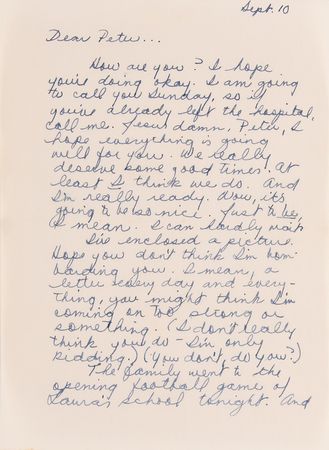 Sept. 10
Dear Peter...
How are you? I hope
you're doing okay. I am going
to call you Sunday, so if
you've already left the hospital,
call me. Jesus damn, Peter, I
hope everything is going
well for you. We really
deserve some good times. At
least I think we do. And
I'm really ready. Wow, it's
going to be so nice. Just to be,
I mean. I can hardly wait.
I've enclosed a picture.
Hope you don't think I'm bom-
barding you. I mean, a
letter every day and every-
thing, you might think I'm
coming on too strong or
something. (I don't really
think you do - I'm only
kidding.) (You don't, do you?)
The family went to the
opening football game of
Laura's School tonight. And